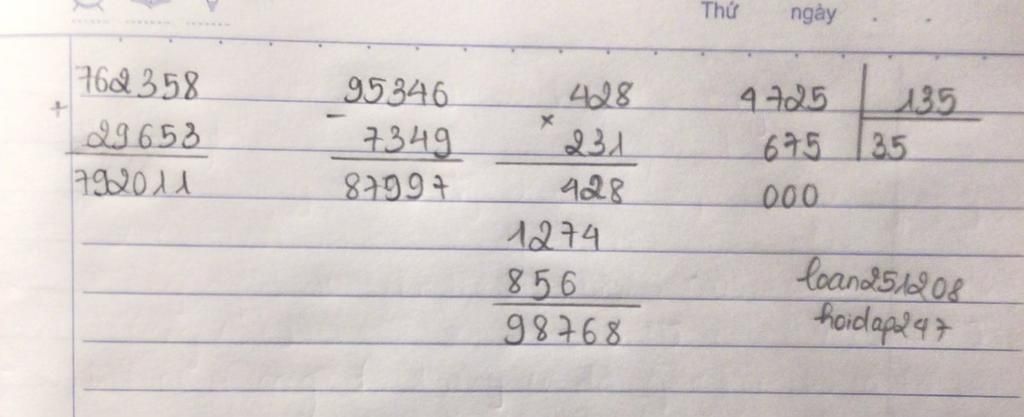 Thứ ngày . .
762358
+
29653
792011
95346
-
7349
87997
428
×
231
428
1274
856
98768
4725 135
675 35
000
loan251208
hoidap247